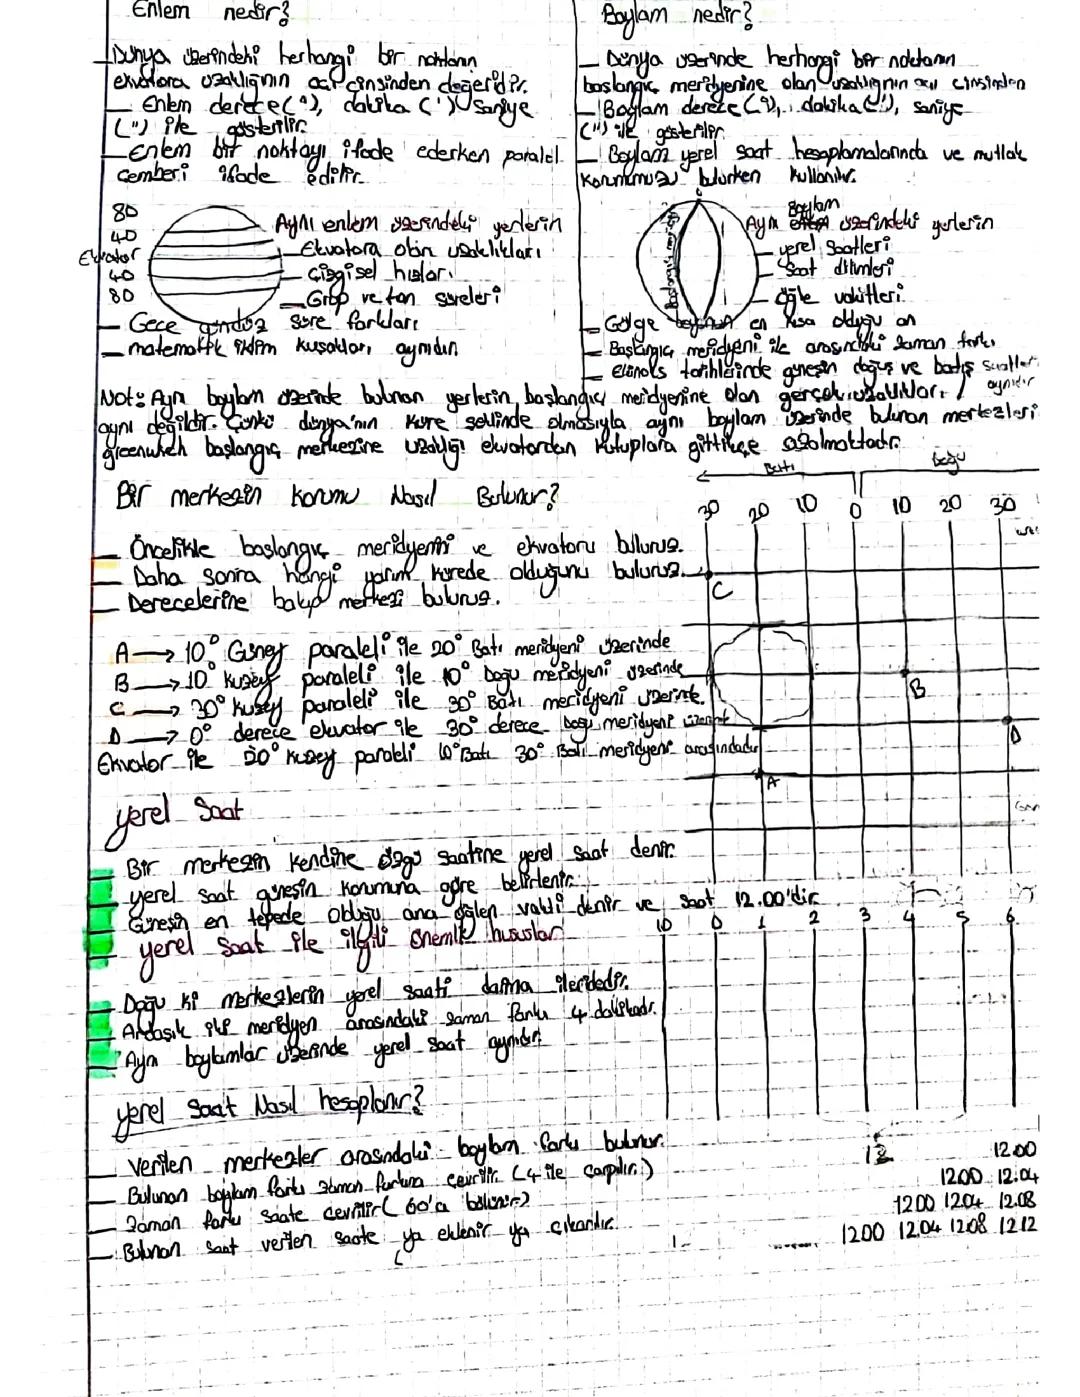 Enlem nedir?
— Dünya üzerindeki herhangi bir noktanın
ekvatora uzaklığının açı cinsinden değeridir.
— Enlem derece(°), dakika (') saniye
('') ile gösterilir.
— Enlem bir noktayı ifade ederken paralel
çemberi ifade edilir.
80
40
Ekvator
40
80
Aynı enlem üzerindeki yerlerin
— Ekvatora olan uzaklıkları
— Çizgisel hızları
— Grup ve tan süreleri
— Gece gündüz süre farkları
— matematik iklim kuşakları aynıdır.
Boylam nedir?
— Dünya üzerinde herhangi bir noktanın
başlangıç meridyenine olan uzaklığının açı cinsinden
— Boylam derece (°), dakika ('), saniye
('') ile gösterilir.
— Boylam yerel saat hesaplamalarında ve mutlak
konumumuzu bulurken kullanılır.
Başlangıç meridyeni
Boylam
Aynı üzerindeki yerlerin
— yerel saatleri
— Saat dilimleri
— öğle vakitleri
— Gölge boyunun en kısa olduğu an
— Başlangıç meridyeni ile arasındaki zaman farkı
— ekinoks tarihlerinde güneşin doğuş ve batış saatleri
aynıdır
Not: Aynı boylam üzerinde bulunan yerlerin başlangıç meridyenine olan gerçek uzaklıkları
aynı değildir. Çünkü dünya'nın küre şeklinde olmasıyla aynı boylam üzerinde bulunan merkezleri
greenwich başlangıç merkezine uzaklığı ekvatordan kutuplara gittikçe azalmaktadır.
Bir merkezin konumu Nasıl Bulunur?
— Öncelikle başlangıç meridyenini ve ekvatoru buluruz.
— Daha sonra hangi yarım kürede olduğunu buluruz.
— Derecelerine bakıp merkezi buluruz.
A → 10° Güney paraleli ile 20° Batı meridyeni üzerinde
B → 10° Kuzey paraleli ile 10° Doğu meridyeni üzerinde
C → 30° Kuzey paraleli ile 30° Batı meridyeni üzerinde.
D → 0° derece ekvator ile 30° derece Doğu meridyeni üzerinde
Ekvator ile 20° Kuzey paraleli 10° Batı 30° Batı meridyeni arasındadır
Batı
Doğu
30 20 10 0 10 20 30
C
B
D
A
yerel Saat
Bir merkezin kendine özgü saatine yerel saat denir.
yerel saat güneşin konumuna göre belirlenir.
Güneşin en tepede olduğu ana öğlen vakti denir ve saat 12.00'dir
yerel Saat ile ilgili önemli hususlar
— Doğu ki merkezlerin yerel saati daima ileridedir.
— Ardaşık iki meridyen arasındaki zaman farkı 4 dakikadır.
Aynı boylamlar üzerinde yerel saat aynıdır.
10 0 1 2 3 4 5 6
yerel Saat Nasıl hesaplanır?
— Verilen merkezler arasındaki boylam farkı bulunur.
— Bulunan boylam farkı zaman farkına çevrilir (4 ile çarpılır.)
— Zaman farkı saate çevrilir (60'a bölünür)
— Bulunan saat verilen saate ya eklenir ya çıkarılır.
12 12.00
12.00 12.04
12.00 12.04 12.08
12.00 12.04 12.08 12.12